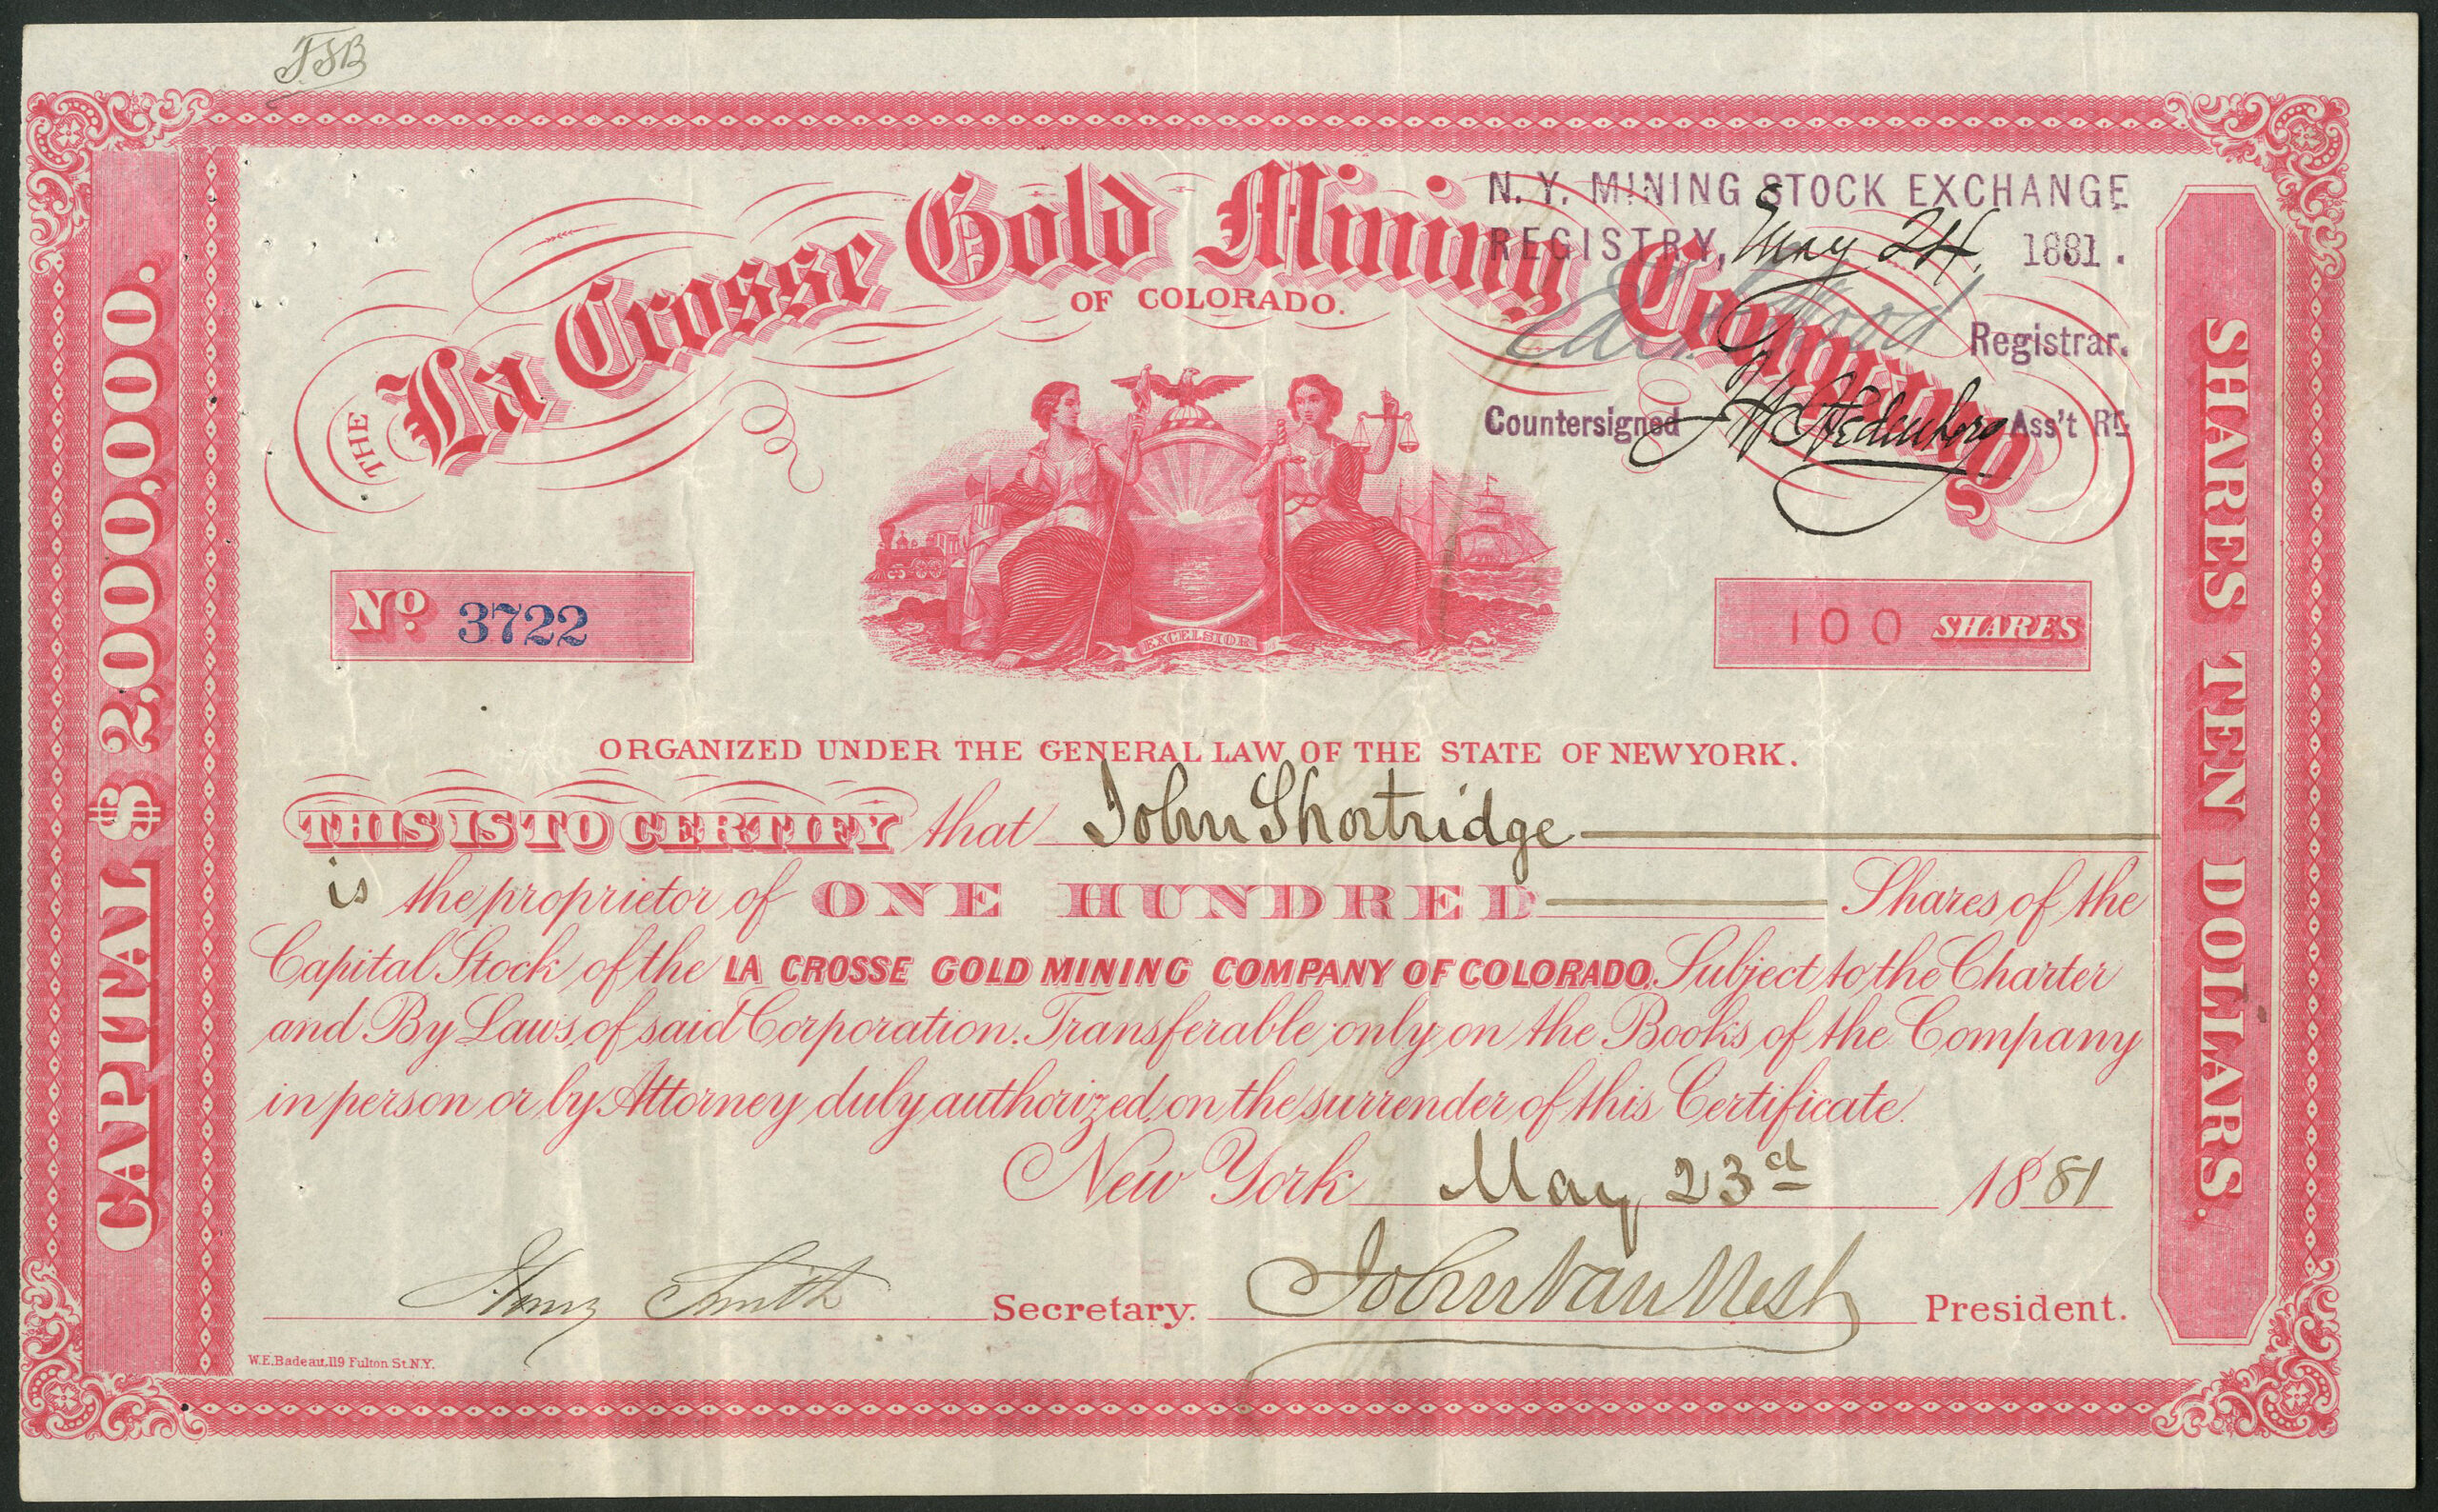 JSB
N. Y. MINING STOCK EXCHANGE
REGISTRY, May 24, 1881.
Registrar.
Countersigned Ass't Rr.
THE La Crosse Gold Mining Company
OF COLORADO.
CAPITAL $ 2,000,000.
SHARES TEN DOLLARS.
EXCELSIOR
No 3722
100 SHARES
ORGANIZED UNDER THE GENERAL LAW OF THE STATE OF NEW YORK.
THIS IS TO CERTIFY that John Shortridge
is the proprietor of ONE HUNDRED Shares of the
Capital Stock of the LA CROSSE GOLD MINING COMPANY OF COLORADO. Subject to the Charter
and By Laws of said Corporation. Transferable only on the Books of the Company
in person or by Attorney duly authorized, on the surrender of this Certificate.
New York May 23d 1881
Henry Smith Secretary. John Van Nest President.
W.E. Badeau, 119 Fulton St. N.Y.